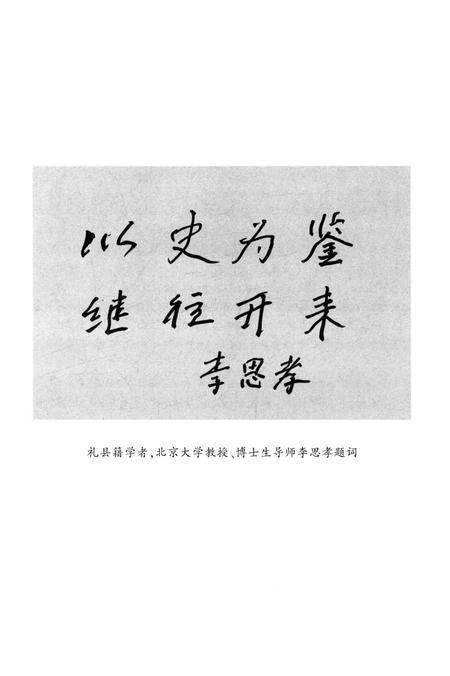 以史为鉴
继往开来
李思孝
礼县籍学者,北京大学教授、博士生导师李思孝题词